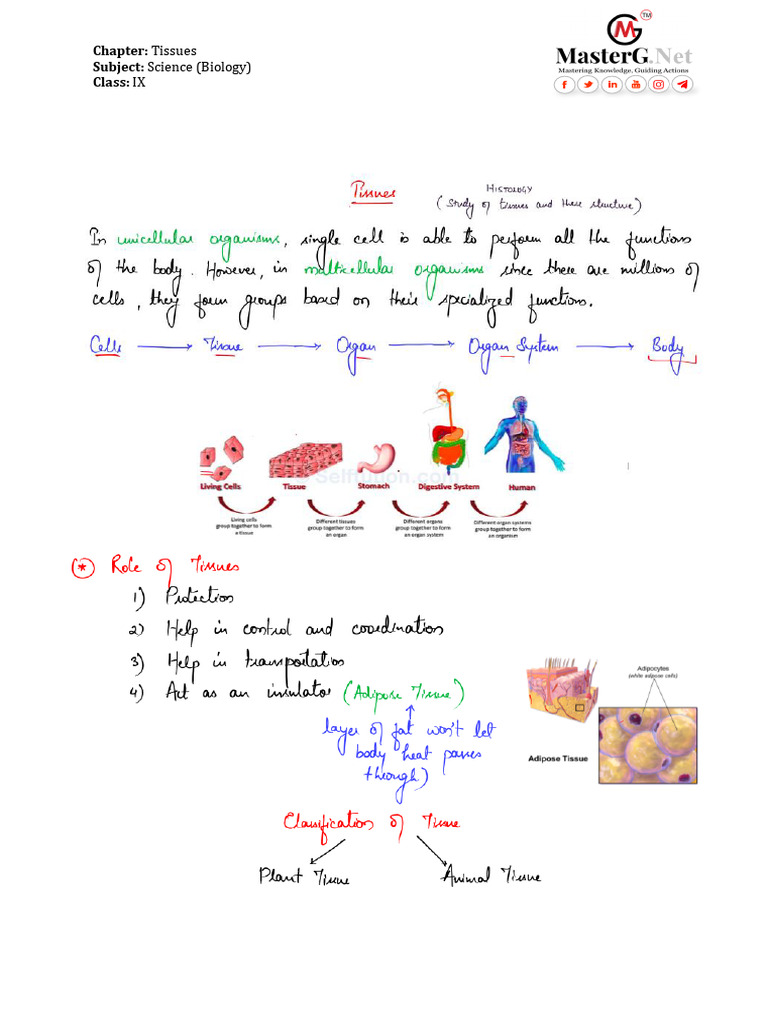 Chapter: Tissues
Subject: Science (Biology)
Class: IX
MG
TM
MasterG.Net
Mastering Knowledge, Guiding Actions
Tissues
HISTOLOGY
(Study of tissues and their structure)
In unicellular organisms, single cell is able to perform all the functions
of the body. However, in multicellular organisms since there are millions of
cells, they form groups based on their specialized functions.
Cells → Tissue → Organ → Organ System → Body
Selftution.com
Living Cells Tissue Stomach Digestive System Human
Living cells group together to form a tissue
Different tissues group together to form an organ
Different organs group together to form an organ system
Different organ systems group together to form an organism
(*) Role of Tissues
1) Protection
2) Help in control and coordination
3) Help in transportation
4) Act as an insulator (Adipose Tissue)
layer of fat won't let
body heat passes
through)
Adipocytes
(white adipose cells)
Adipose Tissue
Classification of Tissue
Plant Tissue Animal Tissue